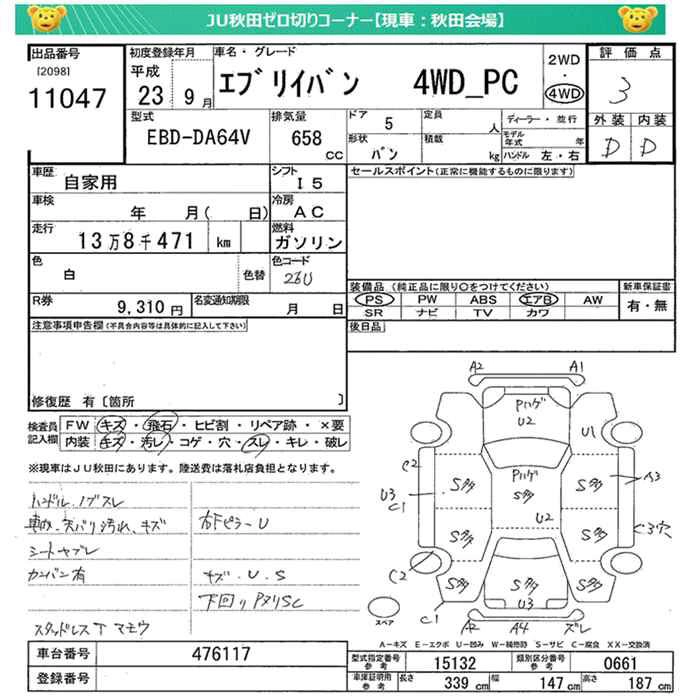 JU秋田ゼロ切りコーナー【現車：秋田会場】
出品番号
[2098]
11047
初度登録年月
平成
23 9月
車名・グレード
エブリイバン 4WD_PC
2WD
・
4WD
評価点
3
外装 内装
D D
型式
EBD-DA64V
排気量
658
cc
ドア 5
形状 バン
定員 人
積載 kg
ディーラー・並行
モデル年式 年
ハンドル 左・右
車歴 自家用
シフト I5
車検 年 月( 日)
冷房 AC
走行 13万8千471 km
燃料 ガソリン
色 白 色替
色コード 26U
R券 9,310円
名変通知期限 月 日
セールスポイント(正常に機能するものに限ります)
装備品 (純正品に限り○をつけてください)
PS PW ABS エアB AW
SR ナビ TV カワ
新車保証書
有・無
後日品
注意事項申告欄(不具合内容等は具体的に記入して下さい)
修復歴 有〔箇所 〕
検査員記入欄
FW キズ・飛石・ヒビ割・リペア跡・×要
内装 キズ・汚レ・コゲ・穴・スレ・キレ・破レ
※現車はJU秋田にあります。陸送費は落札店負担となります。
ハンドル、ノブスレ
天バリ汚れ、キズ
シートヤブレ
カンバン有
スタッドレスT マモウ
右Fピラー U
キズ・U・S
下回りPヌリSC
A2 A1
Pハゲ
U2
U1
C2
U3
C1
S多
Pハゲ
S多
S多
A3
U2
S多
S多
C3穴
C2
S多
S多
S多
U3
C1
A2 A4 ズレ
スペア
A-キズ E-エクボ U-凹み W-補修跡 S-サビ C-腐食 XX-交換済
車台番号 476117
登録番号
型式指定番号 参考 15132
類別区分番号 参考 0661
車庫証明用 参考
長さ 339 cm
幅 147 cm
高さ 187 cm